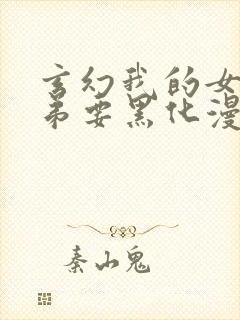 玄幻我的女
弟要黑化漫
秦山鬼